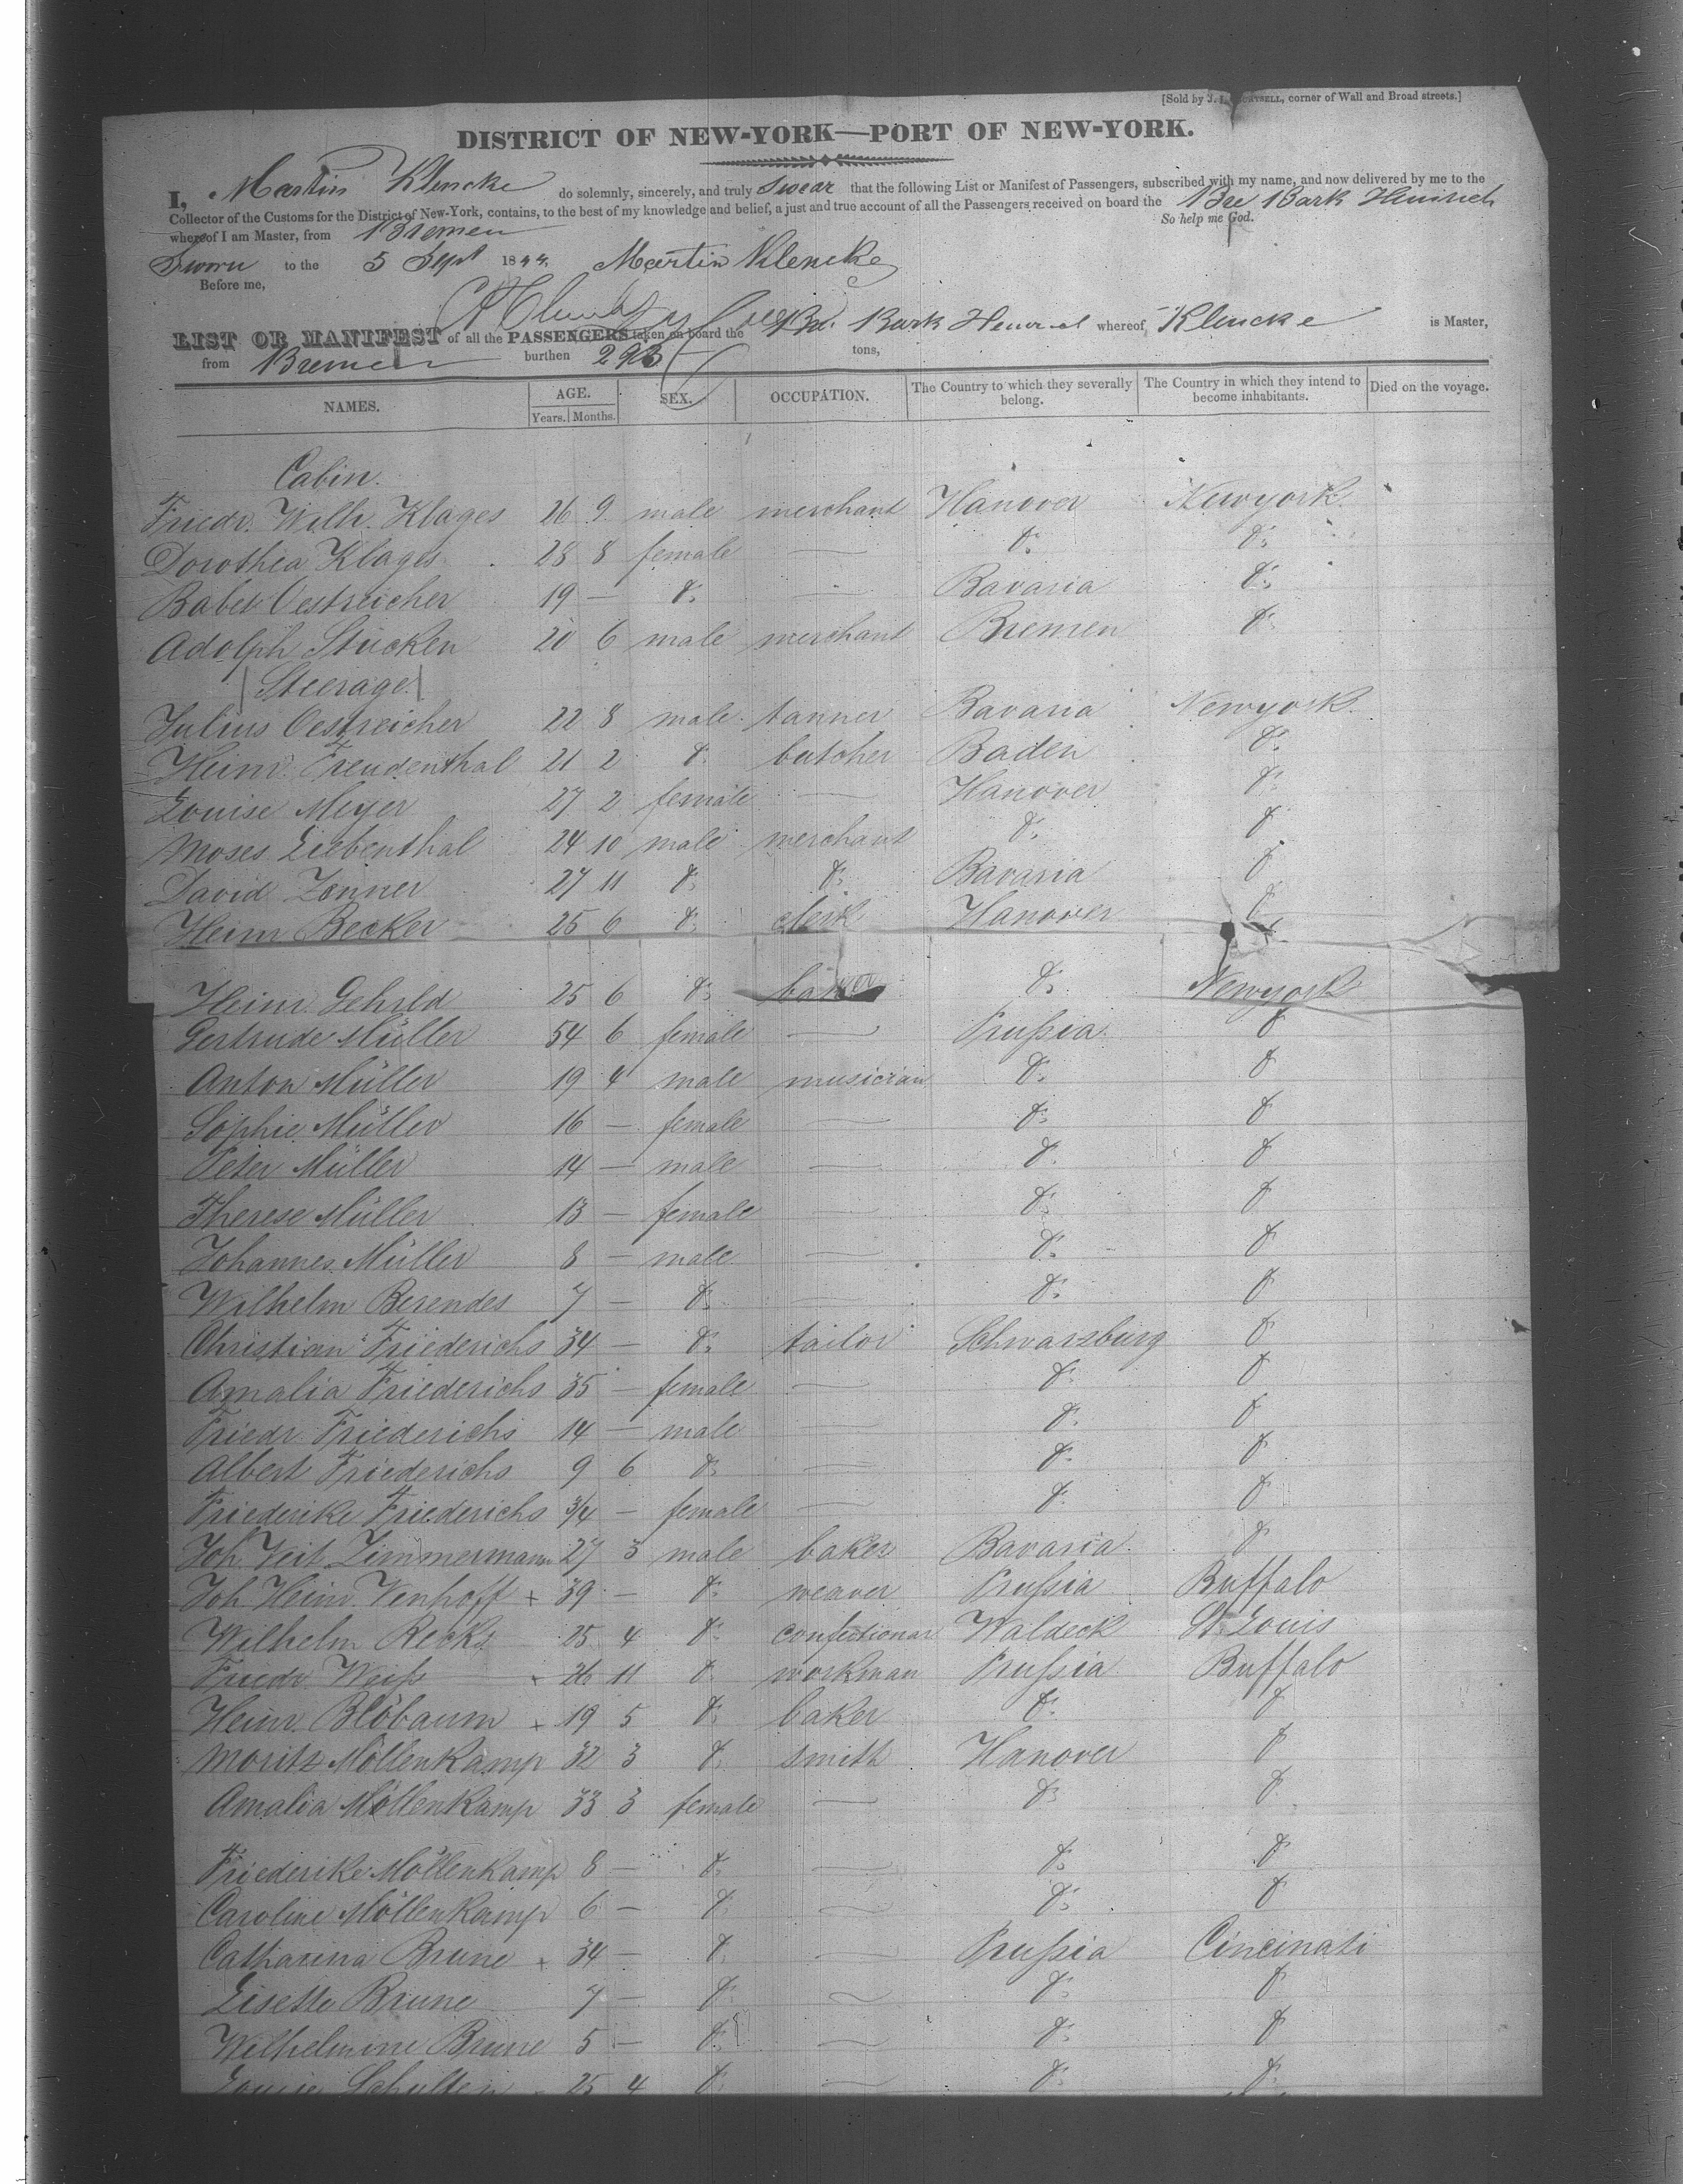 [Sold by J. corner of Wall and Broad streets.]
DISTRICT OF NEW-YORK—PORT OF NEW-YORK.
I, Martin Klencke do solemnly, sincerely, and truly swear that the following List or Manifest of Passengers, subscribed with my name, and now delivered by me to the
Collector of the Customs for the District of New-York, contains, to the best of my knowledge and belief, a just and true account of all the Passengers received on board the Bre Bark Heinrich
whereof I am Master, from Bremen So help me God.
Sworn to the 5 Sept 1844. Martin Klencke
Before me,
LIST OR MANIFEST of all the PASSENGERS taken on board the Bre. Bark Heinrich whereof Klencke is Master,
from Bremen burthen tons,
NAMES. AGE. SEX. OCCUPATION. The Country to which they severally belong. The Country in which they intend to become inhabitants. Died on the voyage.
Years. Months.
Cabin.
Friedr. Wilh. Klages 26 9 male merchant Hanover Newyork
Dorothea Klages 28 8 female — do do
Babet Oestreicher 19 — do — Bavaria do
Adolph Stücken 20 6 male merchant Bremen do
Steerage
Julius Oestreicher 22 8 male tanner Bavaria Newyork
Heinr. Freudenthal 21 2 do butcher Baden do
Louise Meyer 27 2 female — Hanover do
Moses Liebenthal 24 10 male merchant do do
David Zonner 27 11 do do Bavaria do
Heinr Becker 25 6 do clerk Hanover do
Heinr. Gehrld 25 6 do do Newyork
Gertrude Müller 54 6 female — Prußia do
Anton Müller 19 4 male musician do do
Sophie Müller 16 — female — do do
Peter Müller 14 — male — do do
Therese Müller 13 — female — do do
Johannes Müller 8 — male — do do
Wilhelm Berendes 7 — do — do do
Christian Friederichs 34 — do tailor Schwarzburg do
Amalia Friederichs 35 — female — do do
Friedr Friederichs 14 — male — do do
Albert Friederichs 9 6 do — do do
Friederike Friederichs 3/4 — female — do do
Joh. Veit Zimmermann 27 3 male baker Bavaria do
Joh Heinr. Venhoff + 39 — do weaver Prußia Buffalo
Wilhelm Recks 25 4 do confectionar Waldeck St. Louis
Friedr Weiß + 26 11 do workman Prußia Buffalo
Heinr. Blöbaum + 19 5 do baker do do
Moritz Möllenkamp 32 3 do smith Hanover do
Amalia Möllenkamp 33 3 female — do do
Friederike Möllenkamp 8 — do — do do
Caroline Möllenkamp 6 — do — do do
Catharina Brune + 34 — do — Prußia Cincinati
Lisette Brune 7 — do — do do
Wilhelmine Brune 5 — do — do do
Louise Schulten 25 4 do — do do